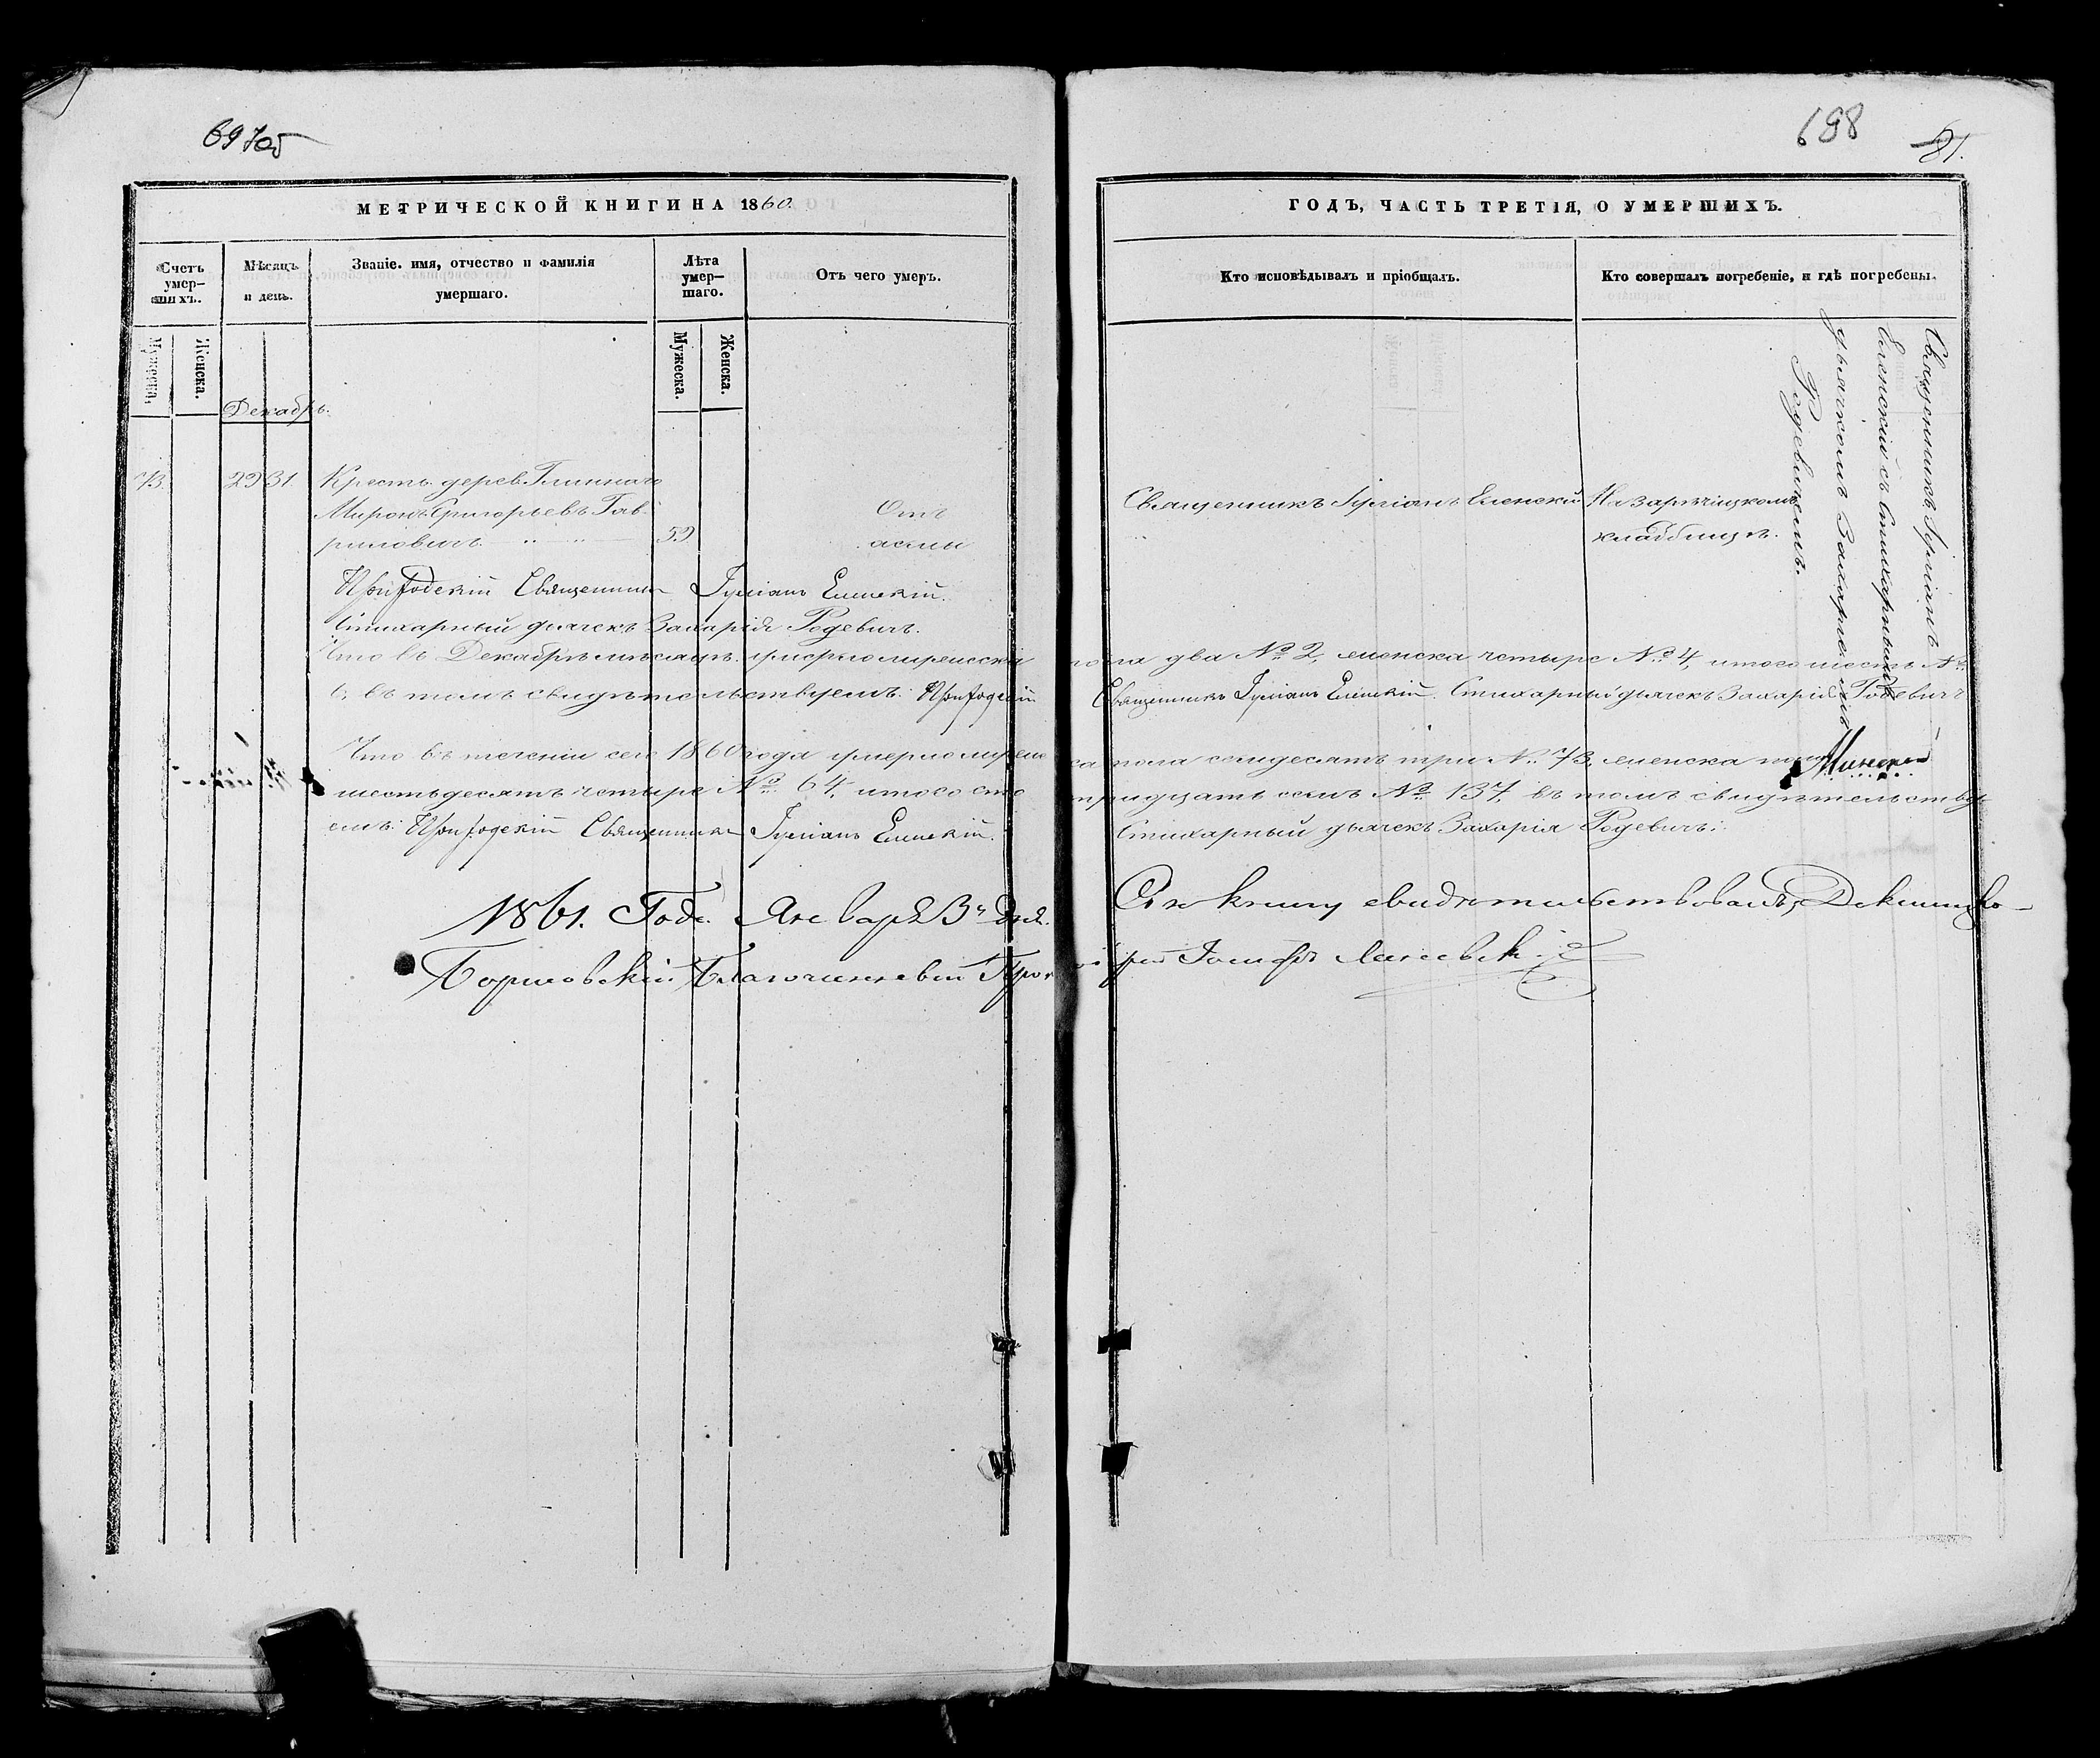 69 705
МЕТРИЧЕСКОЙ КНИГИ НА 1860.
Счетъ умер-шихъ.
Мѣсяцъ и день.
Званіе. имя, отчество и фамилія умершаго.
Лѣта умер-шаго.
Отъ чего умеръ.
Мужеска.
Женска.
Мужеска.
Женска.
Декабрь.
73.
29 31.
Кресть. дерев. Глиннаго
Миронъ Григорьевъ Гав-
риловичъ.
59
Отъ
астмы
Священникъ Іуліанъ Еленскій.
Стихарный дьячекъ Захарія Родевичъ.
Что въ Декабрѣ мѣсяцѣ умерло мужеска
6, въ томъ свидѣтельствуемъ:
Что въ теченіи сего 1860 года умерло муже
шестьдесятъ четыре № 64, итого сто
емъ: Священникъ Іуліанъ Еленскій.
1861. Года. Января 3го дня.
Борисовскій Благочинный Прот
698
81.
ГОДЪ, ЧАСТЬ ТРЕТІЯ, О УМЕРШИХЪ.
Кто исповѣдывалъ и пріобщалъ.
Кто совершалъ погребеніе, и гдѣ погребены.
Священникъ Іуліанъ Еленскій
На Зарѣчицкомъ
кладбищѣ.
Священникъ Іуліанъ
Еленскій съ Стихарнымъ
дьячкомъ Захаріемъ
Родевичемъ.
пола два № 2, женска четыре № 4, итого шесть №
Священникъ Іуліанъ Еленскій. Стихарный дьячекъ Захарія Родевичъ
ка пола семдесятъ три № 73, женска пола
тридцать семь № 137, въ томъ свидѣтельству-
Стихарный дьячекъ Захарія Родевичъ.
Минской
Сію книгу свидѣтельствовалъ,
Іосифъ